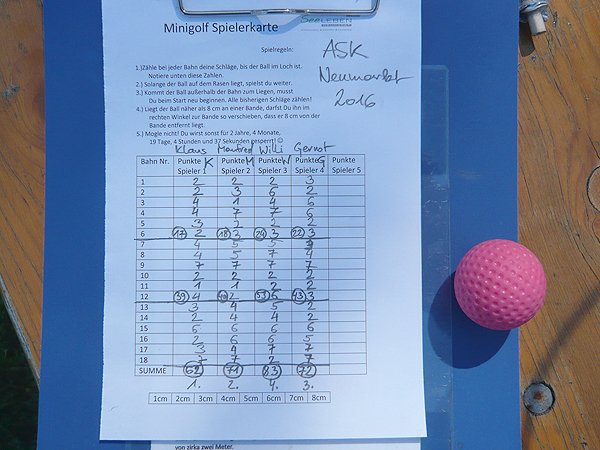 Minigolf Spielerkarte
SeeLEBEN
Spielregeln:
ASK
Neumarkt
2016
1.)Zähle bei jeder Bahn deine Schläge, bis der Ball im Loch ist.
Notiere unten diese Zahlen.
2.) Solange der Ball auf dem Rasen liegt, spielst du weiter.
3.) Kommt der Ball außerhalb der Bahn zum Liegen, musst
Du beim Start neu beginnen. Alle bisherigen Schläge zählen!
4.) Liegt der Ball näher als 8 cm an einer Bande, darfst Du ihn im
rechten Winkel zur Bande so verschieben, dass er 8 cm von der
Bande entfernt liegt.
5.) Mogle nicht! Du wirst sonst für 2 Jahre, 4 Monate,
19 Tage, 4 Stunden und 37 Sekunden gesperrt! ☺
Klaus Manfred Willi Gernot
Bahn Nr. Punkte K Punkte M Punkte W Punkte G Punkte
Spieler 1 Spieler 2 Spieler 3 Spieler 4 Spieler 5
1 2 2 2 3
2 2 3 6 2
3 4 1 4 6
4 4 7 7 6
5 3 2 2 2
6 17 2 18 3 24 3 22 3
7 4 5 5
8 4 5 7 4
9 7 7 7 7
10 2 2 2 2
11 1 1 2 2
12 39 4 2 53 43 3
13 3 4 5 2
14 2 4 4 2
15 6 6 6 6
16 2 6 6 5
17 3 4 7 7
18 7 7 2 7
SUMME 62 71 83 72
1. 2. 4. 3.
1cm 2cm 3cm 4cm 5cm 6cm 7cm 8cm
von zirka zwei Meter.